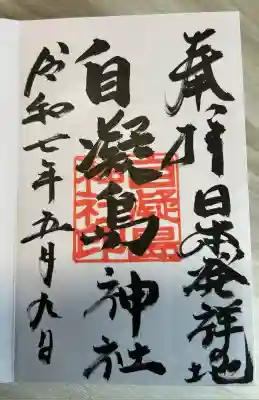 奉拝 日本発祥地
自凝島神社
令和七年五月九日